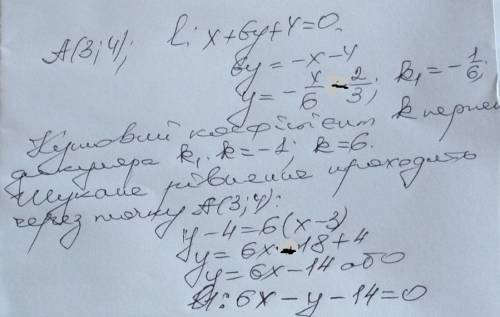 A(3;4); l: x+6y+4=0.
6y=-x-4
y=-x/6-2/3; k₁=-1/6;
Кутовий коефіцієнт k перпен
дикуляра k₁·k=-1; k=6.
Шукане рівняння проходить
через точку A(3;4):
y-4=6(x-3)
y=6x-18+4
y=6x-14 або
6x-y-14=0